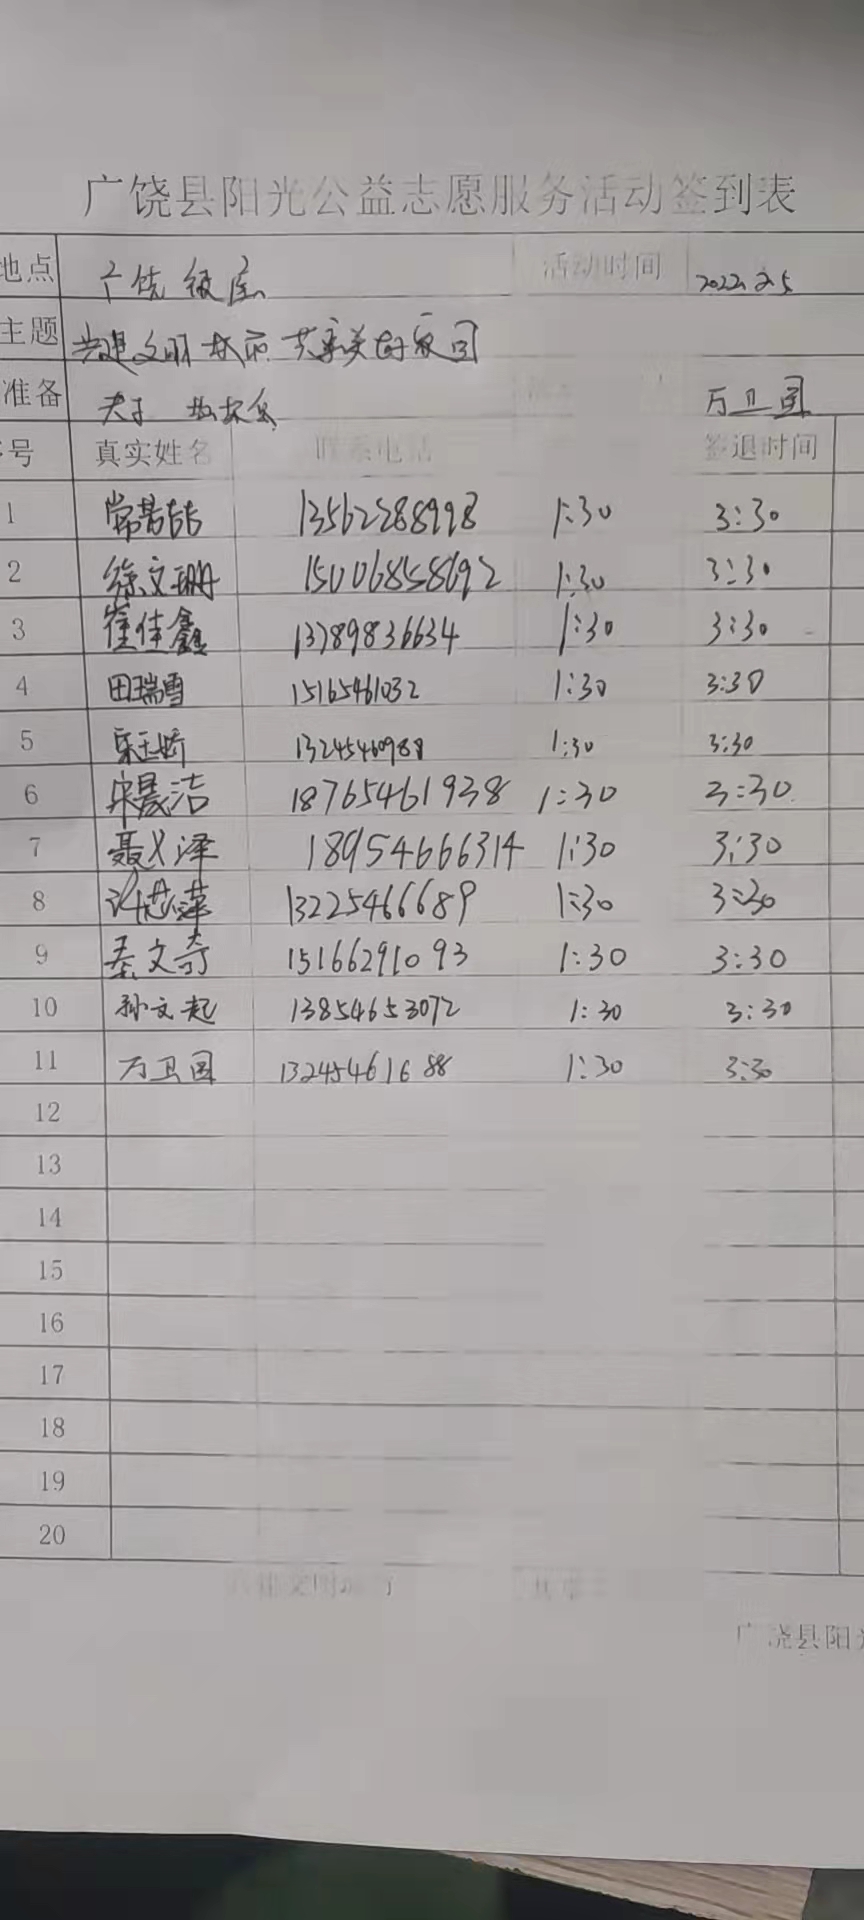 广饶县阳光公益志愿服务活动签到表
地点 广饶 活动时间 2022.2.5
主题 共建文明城市 共享美好家园
准备 夹子 垃圾袋 万卫国
号 真实姓名 联系电话 签退时间
1 常 13562288998 1:30 3:30
2 徐文珊 15006858692 1:30 3:30
3 崔佳鑫 13789836634 1:30 3:30
4 田瑞雪 15165461032 1:30 3:30
5 宋玉娇 13245460988 1:30 3:30
6 宋晟洁 18765461938 1:30 3:30
7 聂义泽 18954666314 1:30 3:30
8 许芯萍 13225466689 1:30 3:30
9 秦文奇 15166291093 1:30 3:30
10 孙文起 13854653072 1:30 3:30
11 万卫国 13245461688 1:30 3:30
12
13
14
15
16
17
18
19
20
广饶县阳光